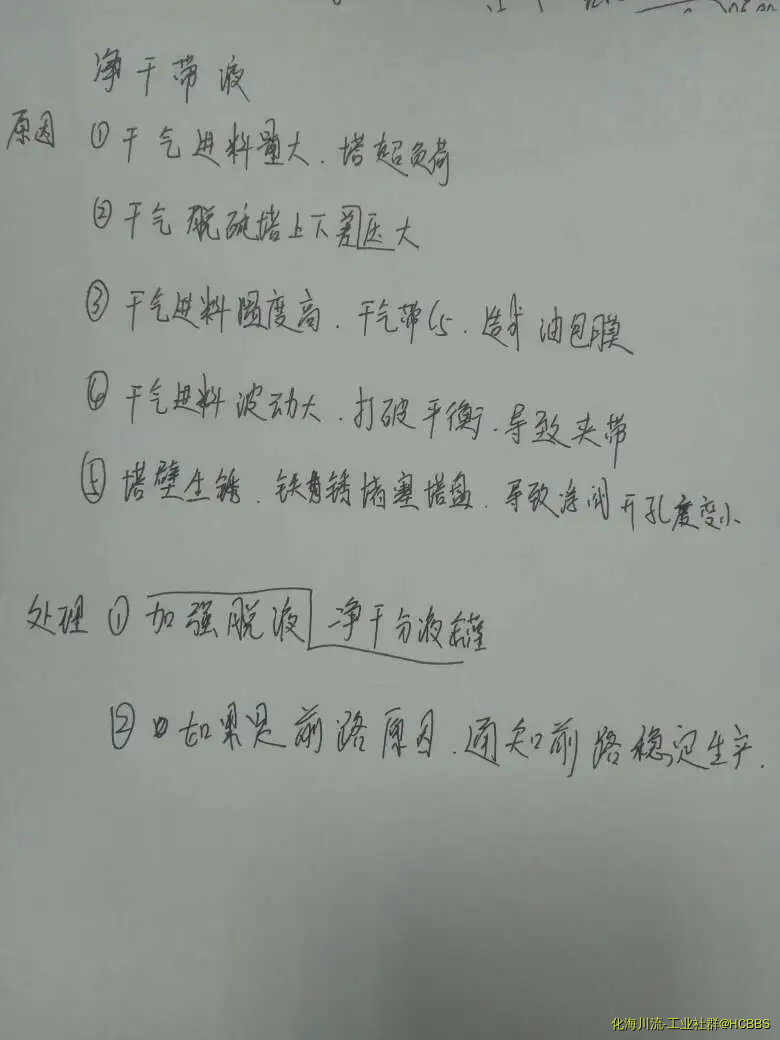 净干带液
原因 ① 干气进料量大、塔超负荷
② 干气脱硫塔上下差压大
③ 干气进料温度高、干气带C5、造成油包膜
④ 干气进料波动大、打破平衡、导致夹带
⑤ 塔壁生锈、铁锈堵塞塔盘、导致浮阀开孔度变小
处理 ① 加强脱液 净干分液罐
② 如果是前路原因、通知前路稳定生产.
化海川流-工业社群@HCBBS